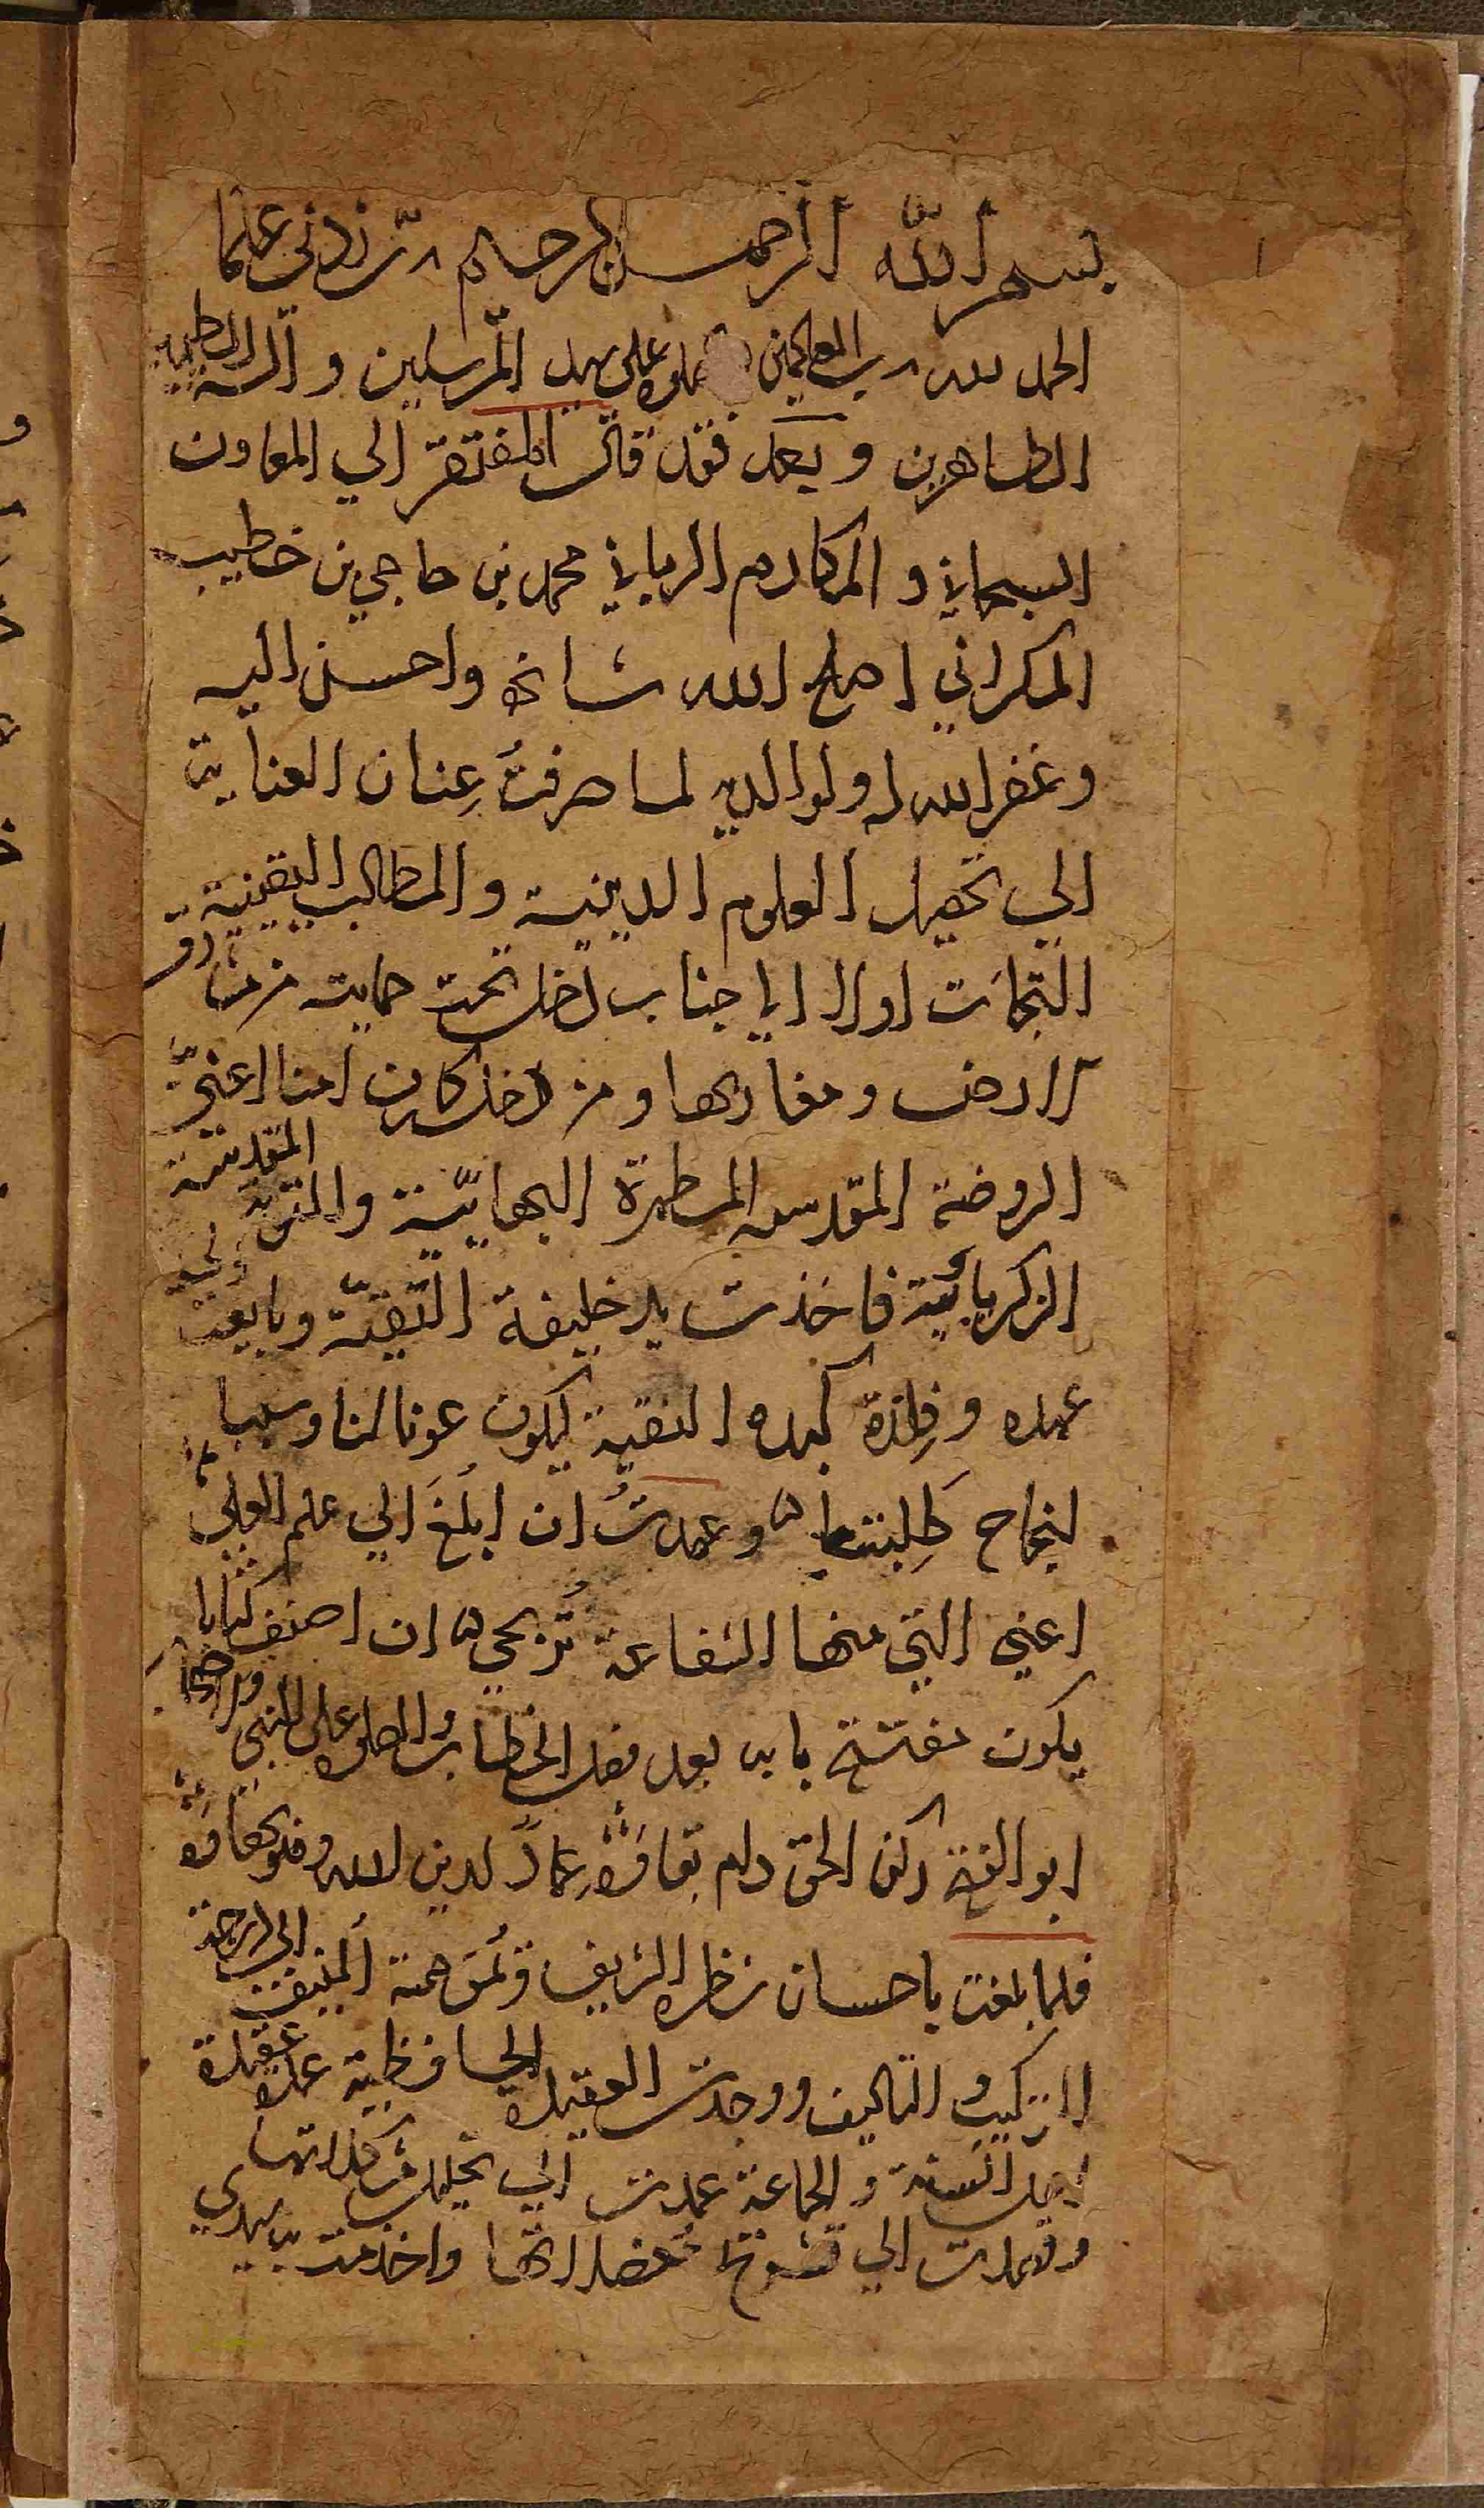 بسم الله الرحمن الرحيم رب زدني علما
الحمد لله رب العالمين والصلوة على سيد المرسلين وآله الطيبين
الطاهرين وبعد فقد قال المفتقر الي المعاون
السبحاني والمكارم الرباني محمد بن حاجي بن خطيب
المكراني اصلح الله شانه واحسن اليه
وغفر الله له ولوالديه لما صرفتُ عِنان العناية
الي تحصيل العلوم الدينية والمطالب اليقينية
التجات اولا الي جناب دخل تحت حمايته من مشارق
الارض ومغاربها ومن دخله كان امنا اعني
الروضة المقدسه المطهرة البهائيّة والتربة المقدسة
الزكريائية فاخذت يد خليفة التقيّة وبايعت
عهده وفلذة كبده النقية ليكون عونا لنا وسببا
لنجاح طَلِبتنا وعهدتُ ان ابلُغَ الي علم العلي
اعني التي منها الشفاعة تُرتجي ان اصنف كتابا
يكون مفتتح بابه بعد فصل الخطاب والصلوة على النبي
ابو الفتح ركن الحق دام بقاؤه عمادًا لدين الله
فلما بلغت باحسان نظره الشريف ويُمن همته المنيف الي درجة
التركيب والتاليف ووجدت العقيدة الحافظية عمدة عقيدة
اهل السنة والجماعة عمدت الي تحليل مشكلاتها
وقصدت الي معضلاتها واخذت بيدي